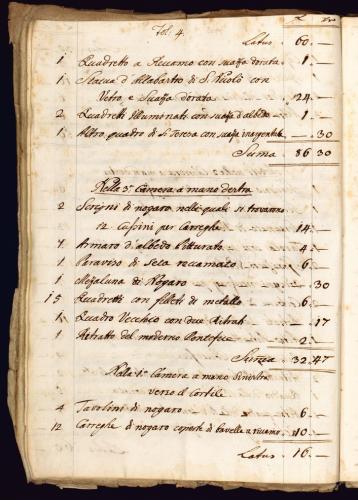 Fol: 4.
Latus 60. —
1 Quadretto a Recamo con suaza dorata 1. —
1 Statua d'Allabastro di S. Nicolò con
Vetro, e Suaza dorata 24. —
2 Quadretti Illuminati con suaza d'albedo 1. —
1 Altro quadro di S. Teresa con suaza inargentata — 30
Suma 86 30
Nella 3ª Camera a mano dextra
2 Scrigni di nogaro nelli quali si trovanno
12 Cussini per Carreghe 14. —
1 Armaro d'albedo Pitturato 4. —
1 Paravino di Seta reccamato 6. —
1 Mezaluna di Nogaro — 30
15 Quadretti con filleti di metallo 6. —
1 Quadro Vecchio con due Ritrati — 17
1 Retratto del moderno Pontefice 2. —
Suma 32. 47
Nella 1ª Camera a mano Sinistra
verso il Cortile
4 Tavolini di nogaro 6. —
12 Carreghe di nogaro coperte di bavella a recamo 10. —
Latus 16. —